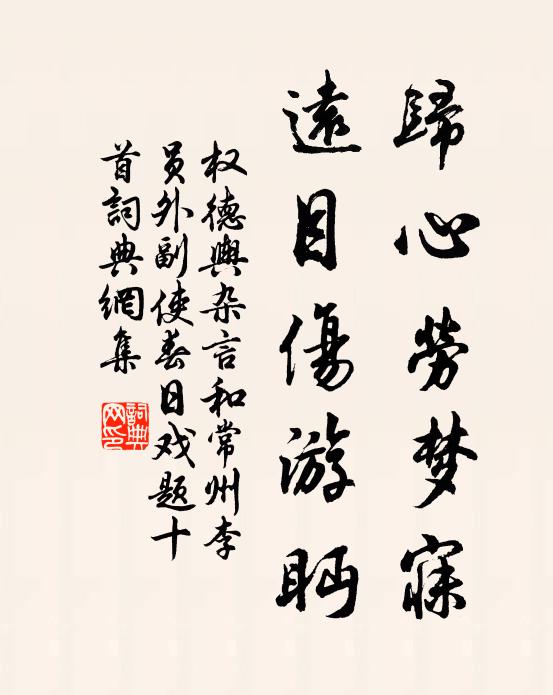 歸心劳梦寐
遠目傷游眄
权德輿杂言和常州李
员外副使春日戏题十
首詞典網集
詞典
网印